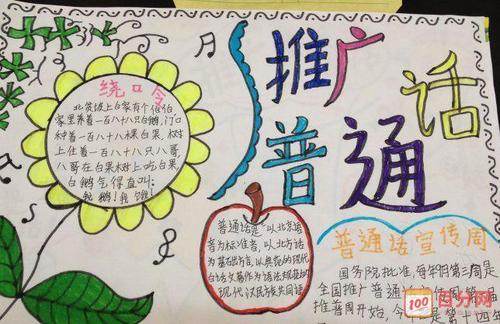 推广
普通
话
绕口令
北贫坡上白家有个伯伯
家里养着一百八十八只白鹅,门口
种着一百八十八棵白果,树
上住着一百八十八只八哥,
八哥在白果树上吃白果,
白鹅气得直叫:
我鹅!我饿!
普通话是“以北京语
音为标准音,以北方话
为基础方言,以典范的现代
白话文著作为语法规范的
现代汉民族共同语
普通话宣传周
国务院批准,每年9月第三周是
全国推广普通
推普周开始,今
是第十四年
100
百分网